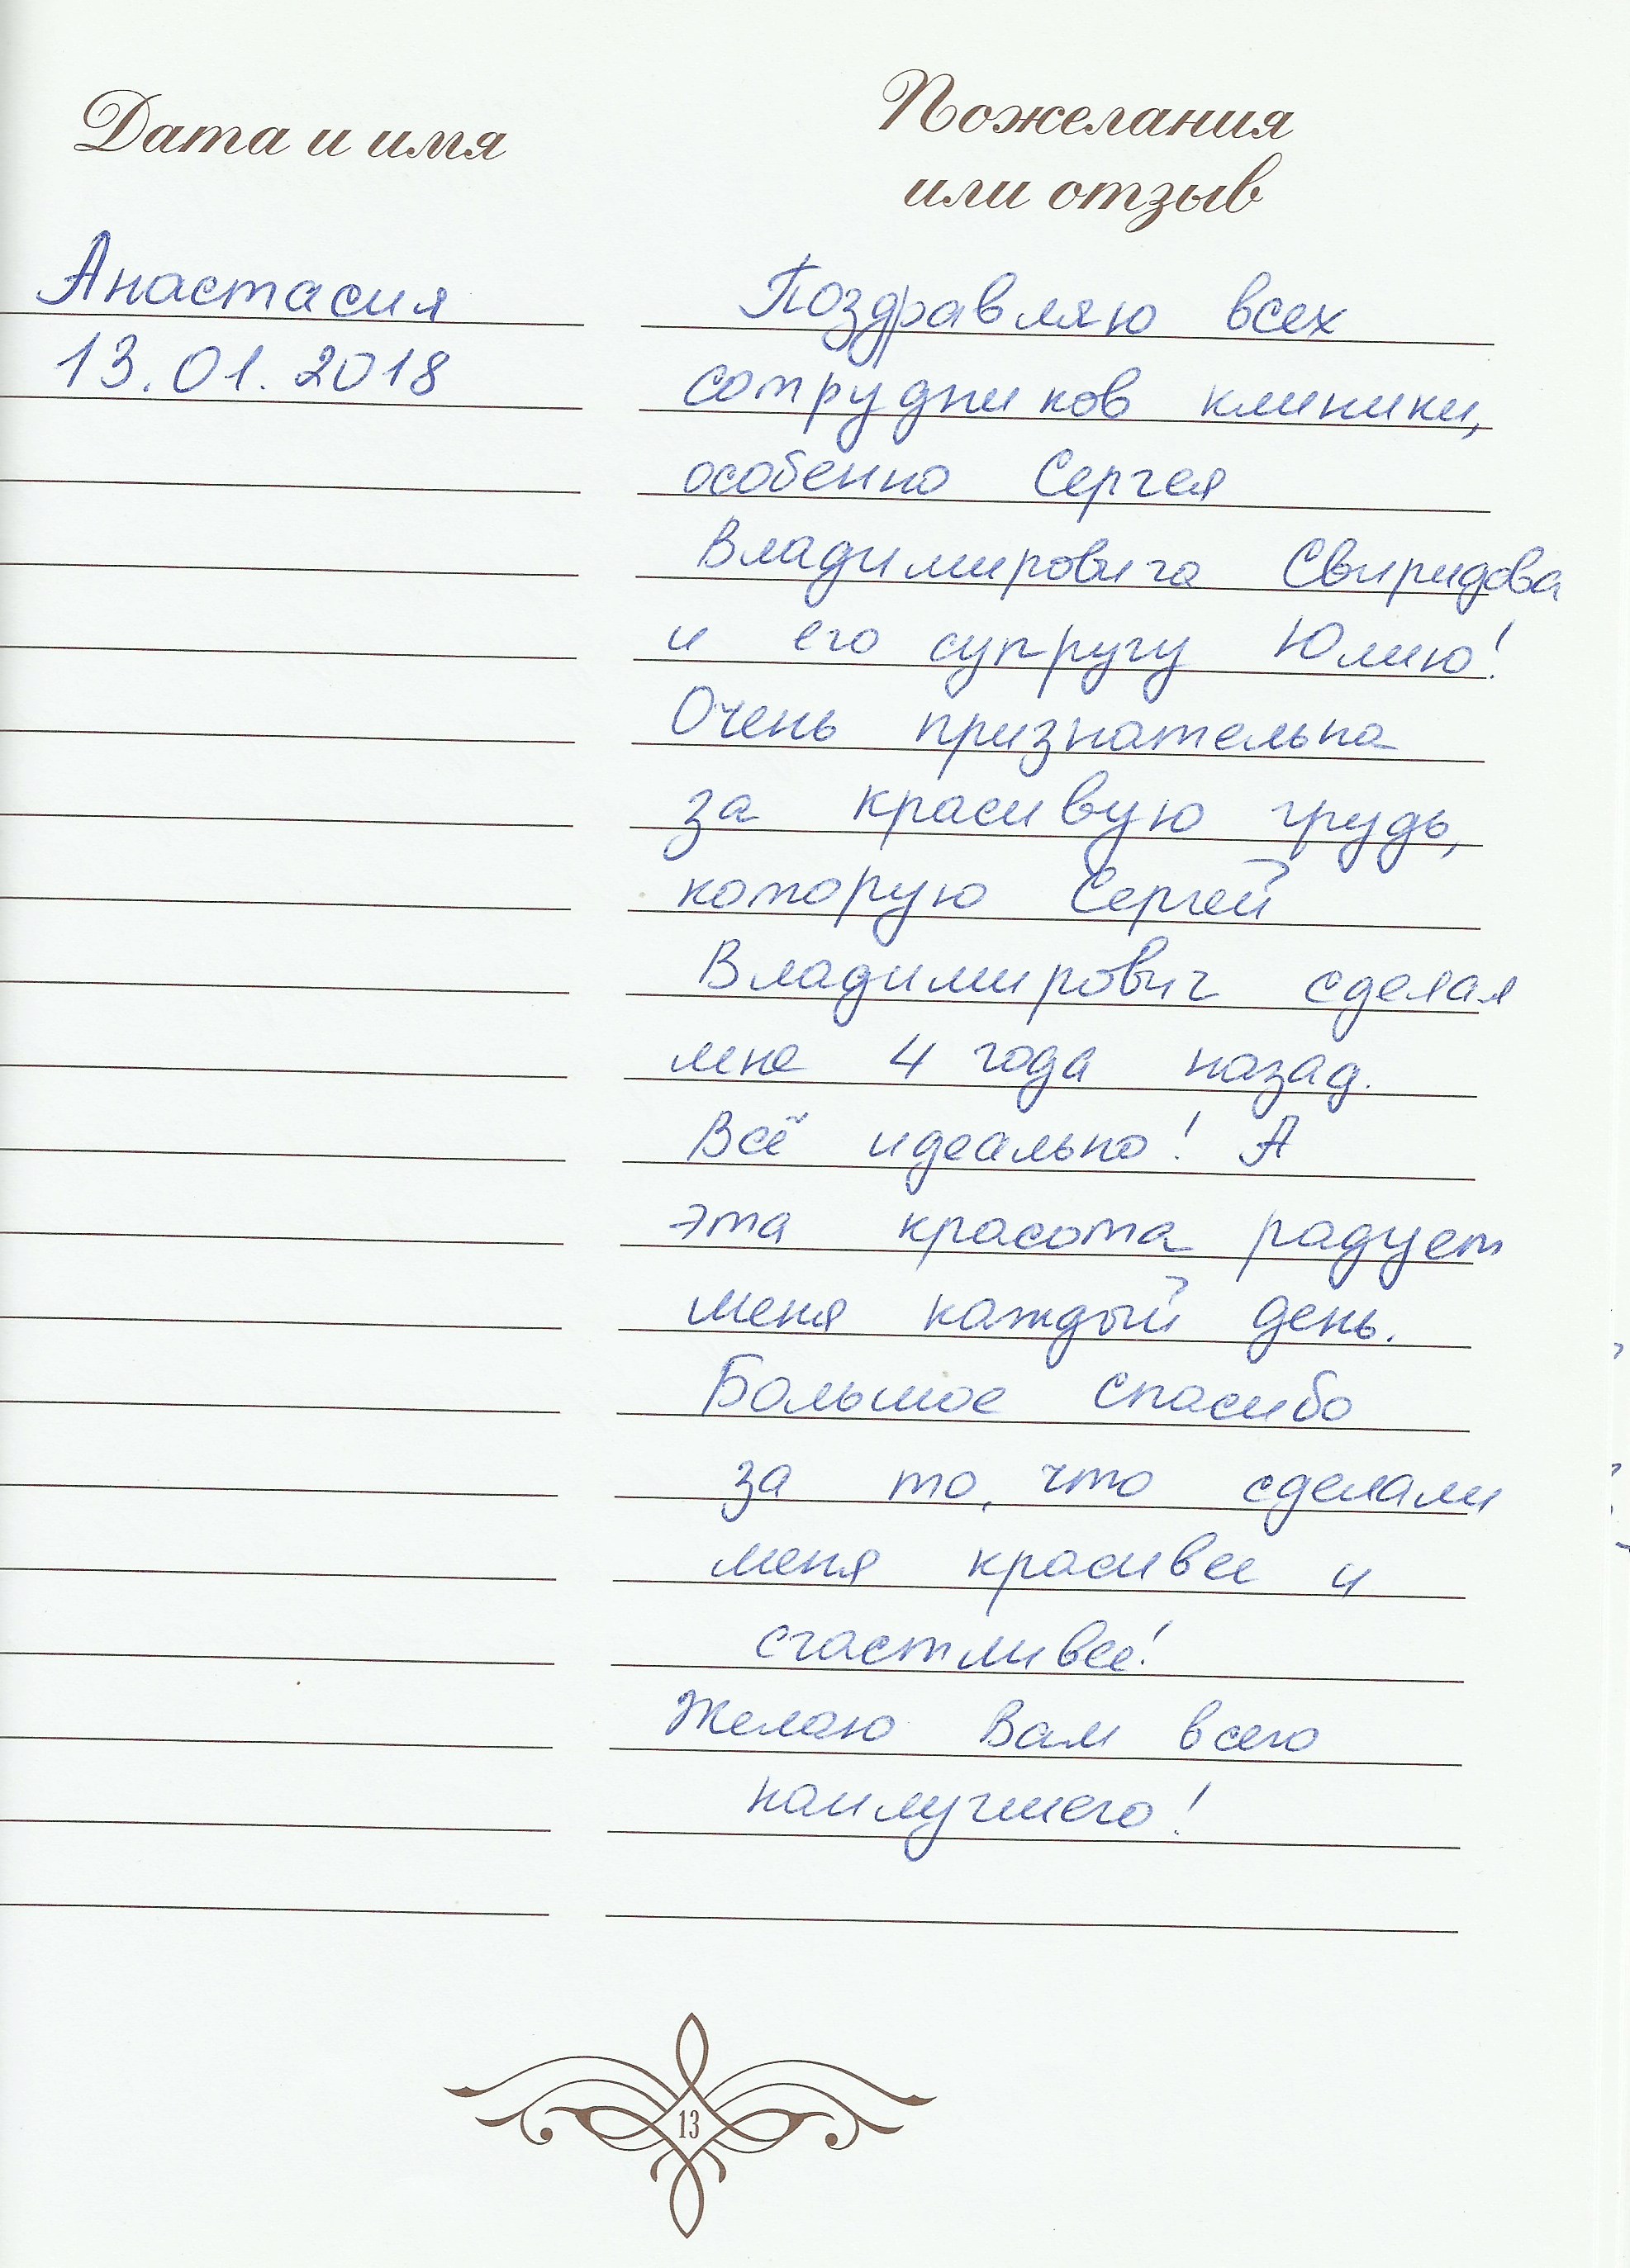 Дата и имя
Пожелания
или отзыв
Анастасия
13.01.2018
Поздравляю всех
сотрудников клиники,
особенно Сергея
Владимировича Свиридова
и его супругу Юлию!
Очень признательна
за красивую грудь,
которую Сергей
Владимирович сделал
мне 4 года назад.
Всё идеально! А
эта красота радует
меня каждый день.
Большое спасибо
за то, что сделали
меня красивее и
счастливее!
Желаю Вам всего
наилучшего!
13